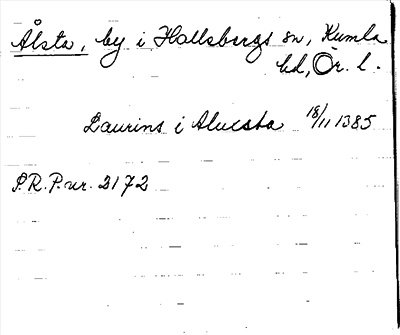 Ålsta, by i Hallsbergs sn, Kumla
hd, Ör. l.
Laurins i Alucsta 18/11 1385
S.R.P. nr. 2172